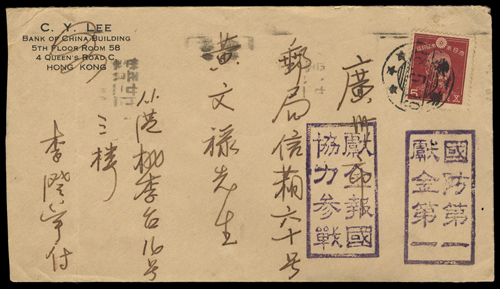 C. Y. LEE
BANK OF CHINA BUILDING
5TH FLOOR ROOM 5B
4 QUEEN'S ROAD, C.
HONG KONG
廣州市
郵局信箱六十号
黃文祿先生
港桃李台16号
三樓
李
付
國防第一
獻金第一
獻金報國
協力參戰